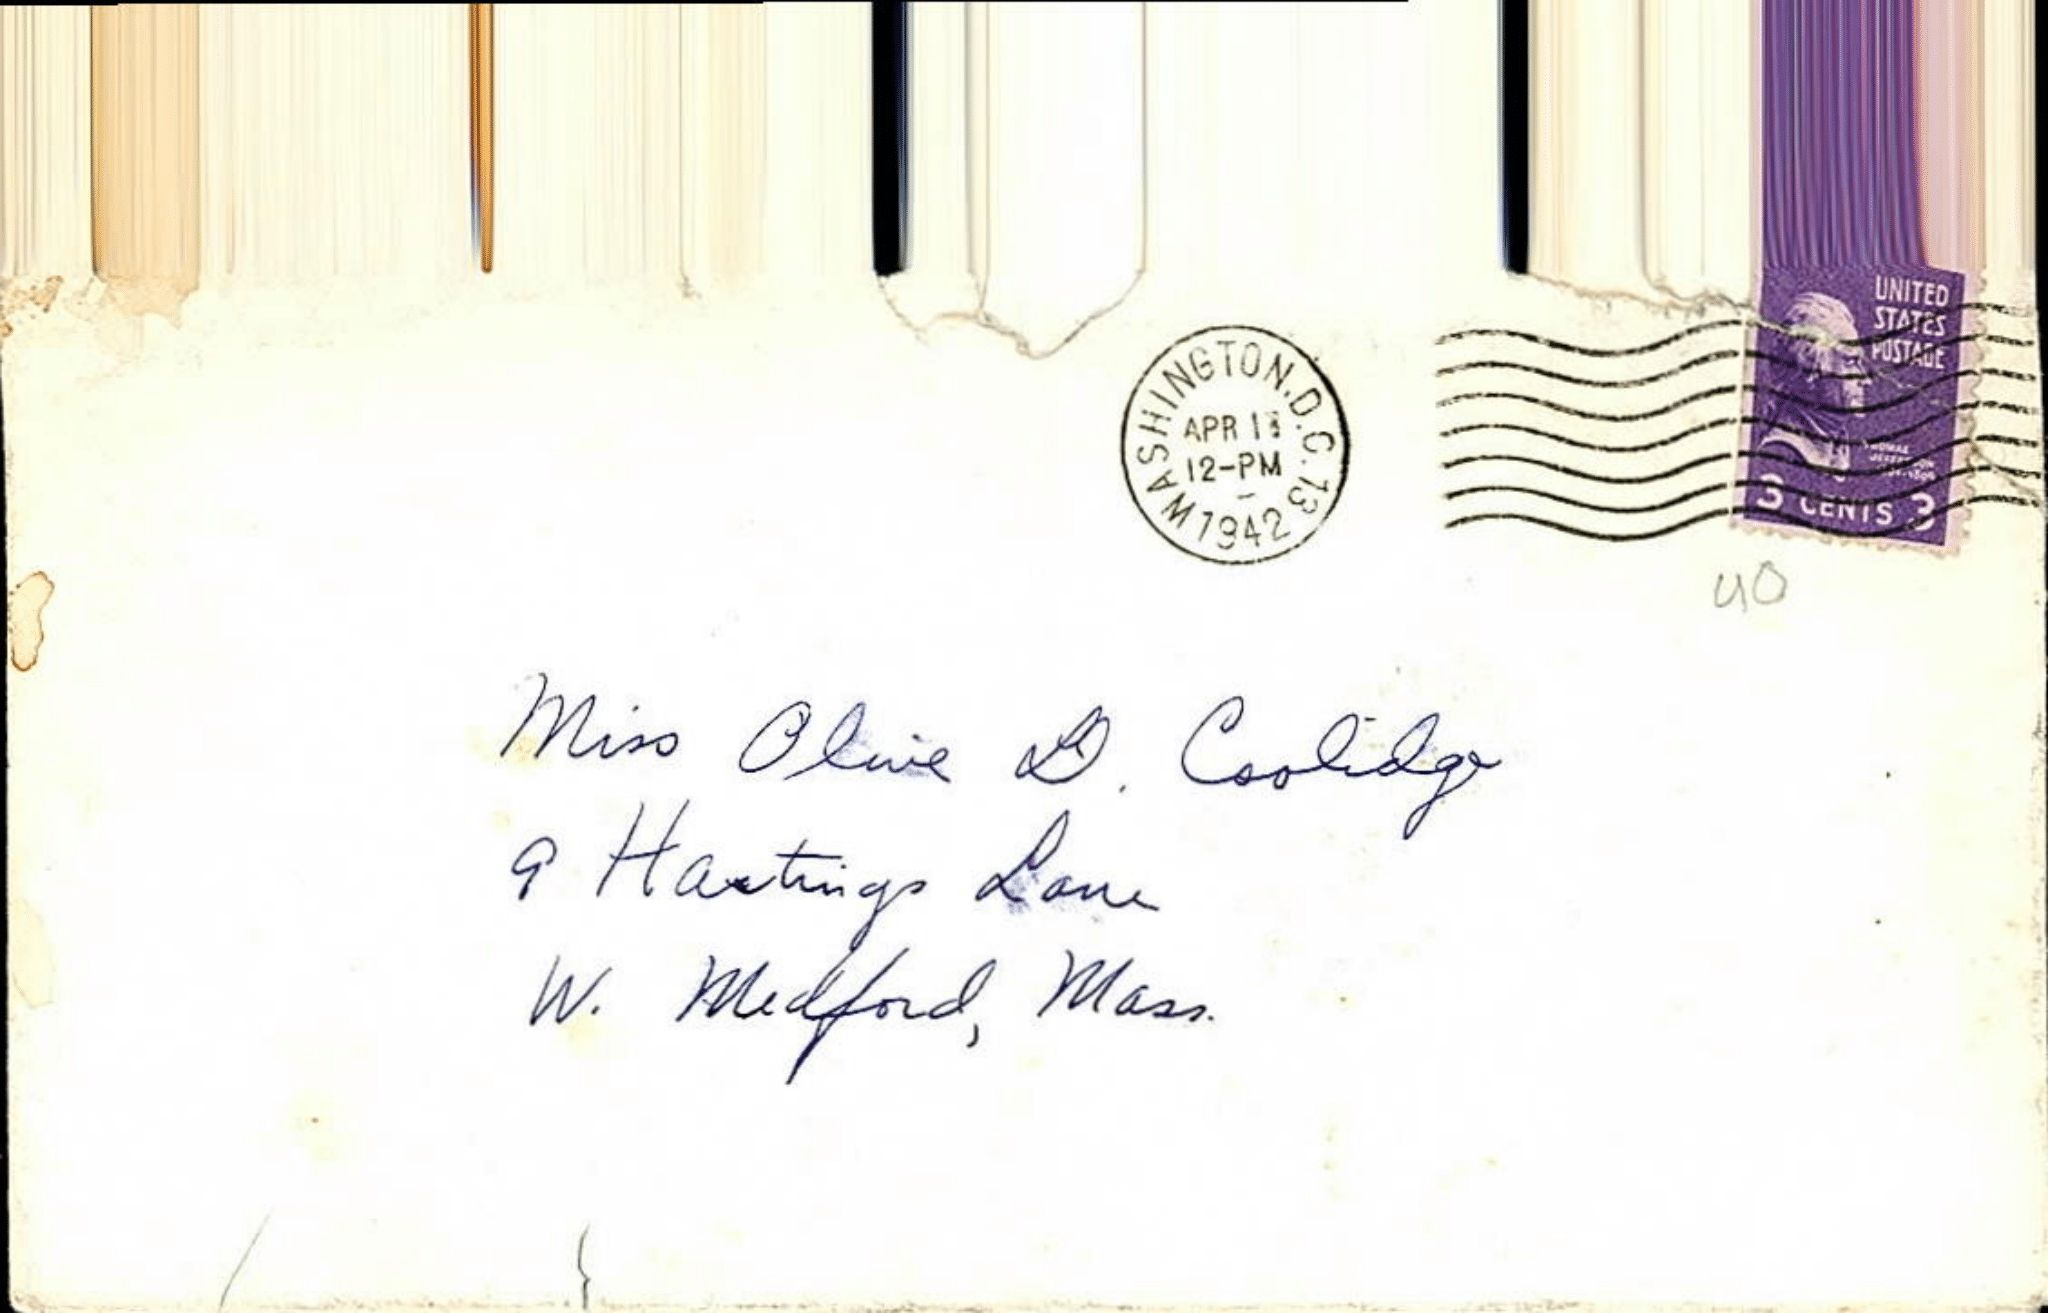 WASHINGTON, D.C. 13
APR 13
12-PM
1942
UNITED
STATES
POSTAGE
THOMAS
JEFFERSON
3 CENTS 3
40
Miss Olive D. Coolidge
9 Hastings Lane
W. Medford, Mass.